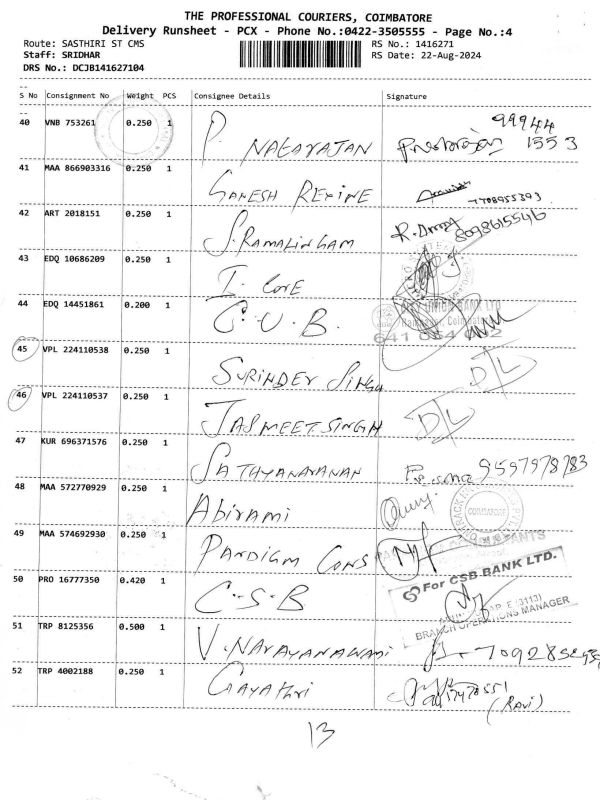 THE PROFESSIONAL COURIERS, COIMBATORE
Delivery Runsheet - PCX - Phone No.:0422-3505555 - Page No.:4
Route: SASTHIRI ST CMS RS No.: 1416271
Staff: SRIDHAR RS Date: 22-Aug-2024
DRS No.: DCJB141627104
S No Consignment No Weight PCS Consignee Details Signature
40 VNB 753261 0.250 1 P. NATARAJAN 99944
1553
41 MAA 866903316 0.250 1 GANESH REXINE 7708955393
42 ART 2018151 0.250 1 S.RAMALINGAM 8098615546
43 EDQ 10686209 0.250 1 I. CORE
44 EDQ 14451861 0.200 1 C.U.B.
641 034
45 VPL 224110538 0.250 1 SURINDER SINGH D/L
46 VPL 224110537 0.250 1 JASMEET SINGH D/L
47 KUR 696371576 0.250 1 SATHYANARAYANAN 9597978783
48 MAA 572770929 0.250 1 Abirami
COIMBATORE
49 MAA 574692930 0.250 1 PARDIGM CONS
50 PRO 16777350 0.420 1 C.S.B For CSB BANK LTD.
(3113)
BRANCH OPERATIONS MANAGER
51 TRP 8125356 0.500 1 V.NARAYANAWAMI
52 TRP 4002188 0.250 1 GAYATHRI
(Ravi)
13